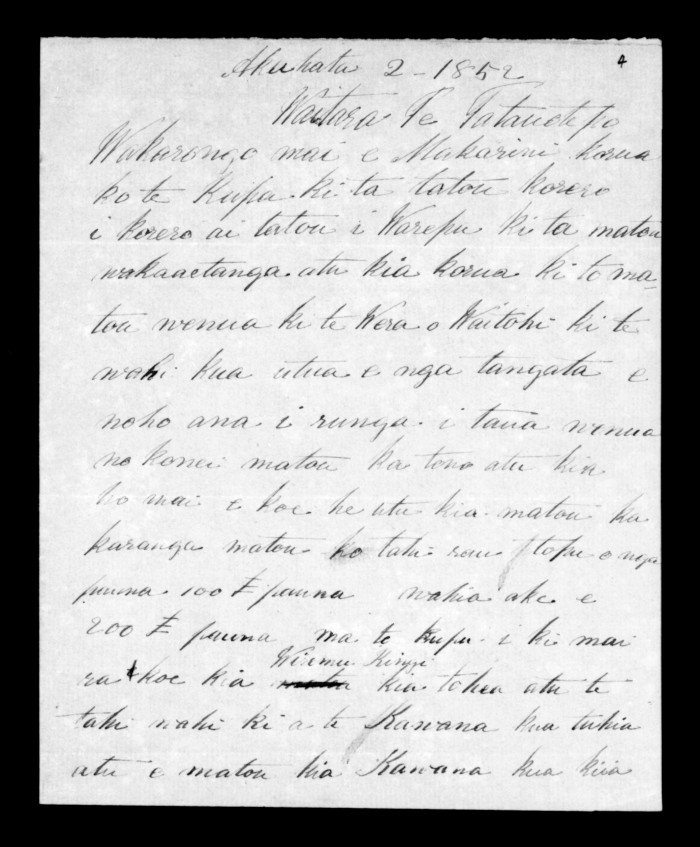 4
Akuhata 2 - 1852
Waitara Te Tatauotepo
Wakarongo mai e Makarini korua
ko te Kupa ki ta tatou korero
i korero ai tatou i Warepu ki ta matou
wakaaetanga atu kia korua ki to ma-
tou wenua ki te Wera o Waitohi ki te
wahi kua utua e nga tangata e
noho ana i runga i taua wenua
no konei matou ka tono atu kia
ho mai e koe he utu kia matou ka
karanga matou ko tahi rau topu o nga
pauna 100 £ pauna wahia ake e
200 £ pauna ma te kupu i ki mai
ra koe kia Wiremu Kingi kia tohea atu te
tahi wahi ki a te Kawana kua tuhia
atu e matou kia Kawana kua kiia